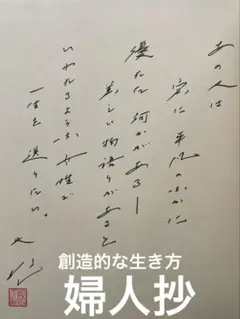 あの人は
実に 平凡のなかに
優れた 何かがある—
美しい物語りがあると
いわれるような女性で
一生を 送りたい。
大作
創造的な生き方
婦人抄